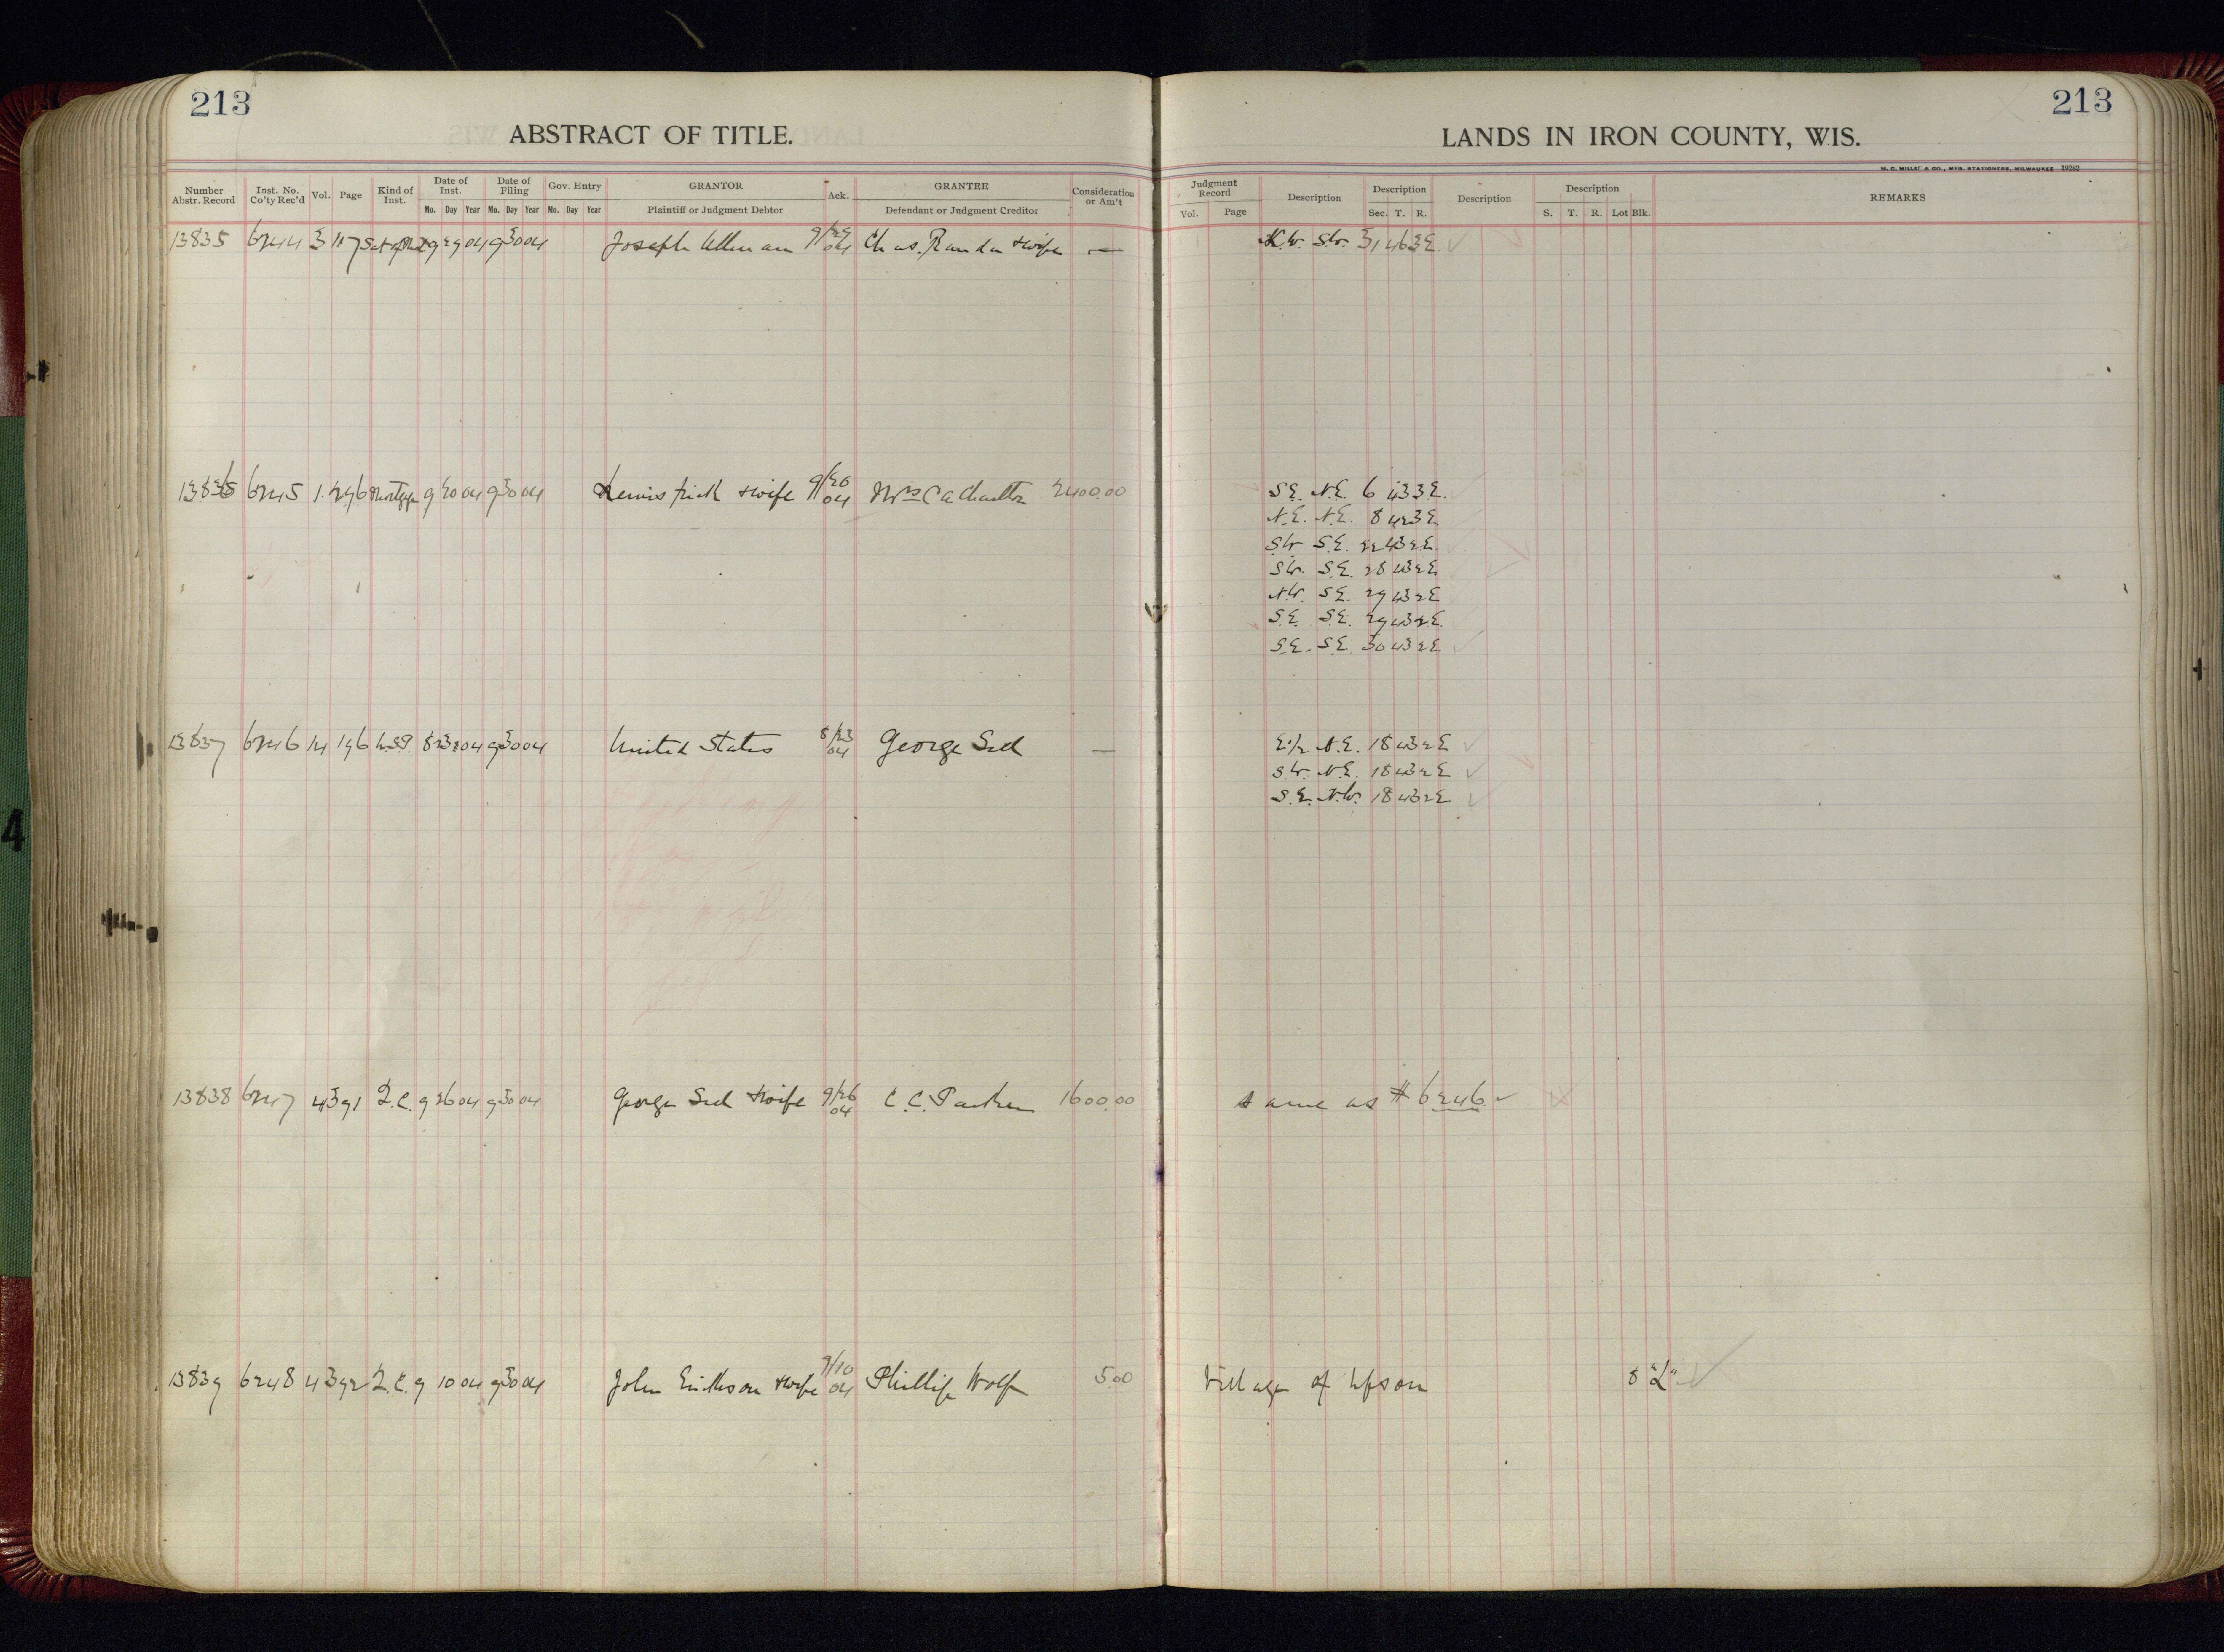 213
213
ABSTRACT OF TITLE.
LANDS IN IRON COUNTY, WIS.
Number Abstr. Record
Inst. No. Co'ty Rec'd
Vol.
Page
Kind of Inst.
Date of Inst.
Mo. Day Year
Date of Filing
Mo. Day Year
Gov. Entry
Mo. Day Year
GRANTOR
Plaintiff or Judgment Debtor
Ack.
GRANTEE
Defendant or Judgment Creditor
Consideration or Am't
Judgment Record
Vol. Page
Description
Description
Sec. T. R.
Description
Description
S. T. R. Lot Blk.
REMARKS
13835 6244 3 117 9 29 04 9 30 04 Joseph 9/29 04 Chas. & wife — S.W. 31 46 3 E.
13836 6245 1 296 Mortgage 9 20 04 9 30 04 & wife 9/20 04 Mrs C A 2400.00 S.E. N.E. 6 43 3 E.
N.E. N.E. 8 42 3 E.
S.W. S.E. 22 43 2 E.
S.W. S.E. 28 43 2 E.
N.W. S.E. 29 43 2 E.
S.E. S.E. 29 43 2 E.
S.E. S.E. 30 43 2 E.
13837 6246 14 196 U.S.P. 8 23 04 9 30 04 United States 8/23 04 George — E.1/2 N.E. 18 43 2 E
S.W. N.E. 18 43 2 E
S.E. N.W. 18 43 2 E
13838 6247 4 391 Q.C. 9 26 04 9 30 04 George & wife 9/26 04 C.C. Parker 1600.00 same as # 6246
13839 6248 4 392 Q.C. 9 10 04 9 30 04 John Erickson & wife 9/10 04 Phillip Wolfe 5.00 Village of Upson 8 "L"